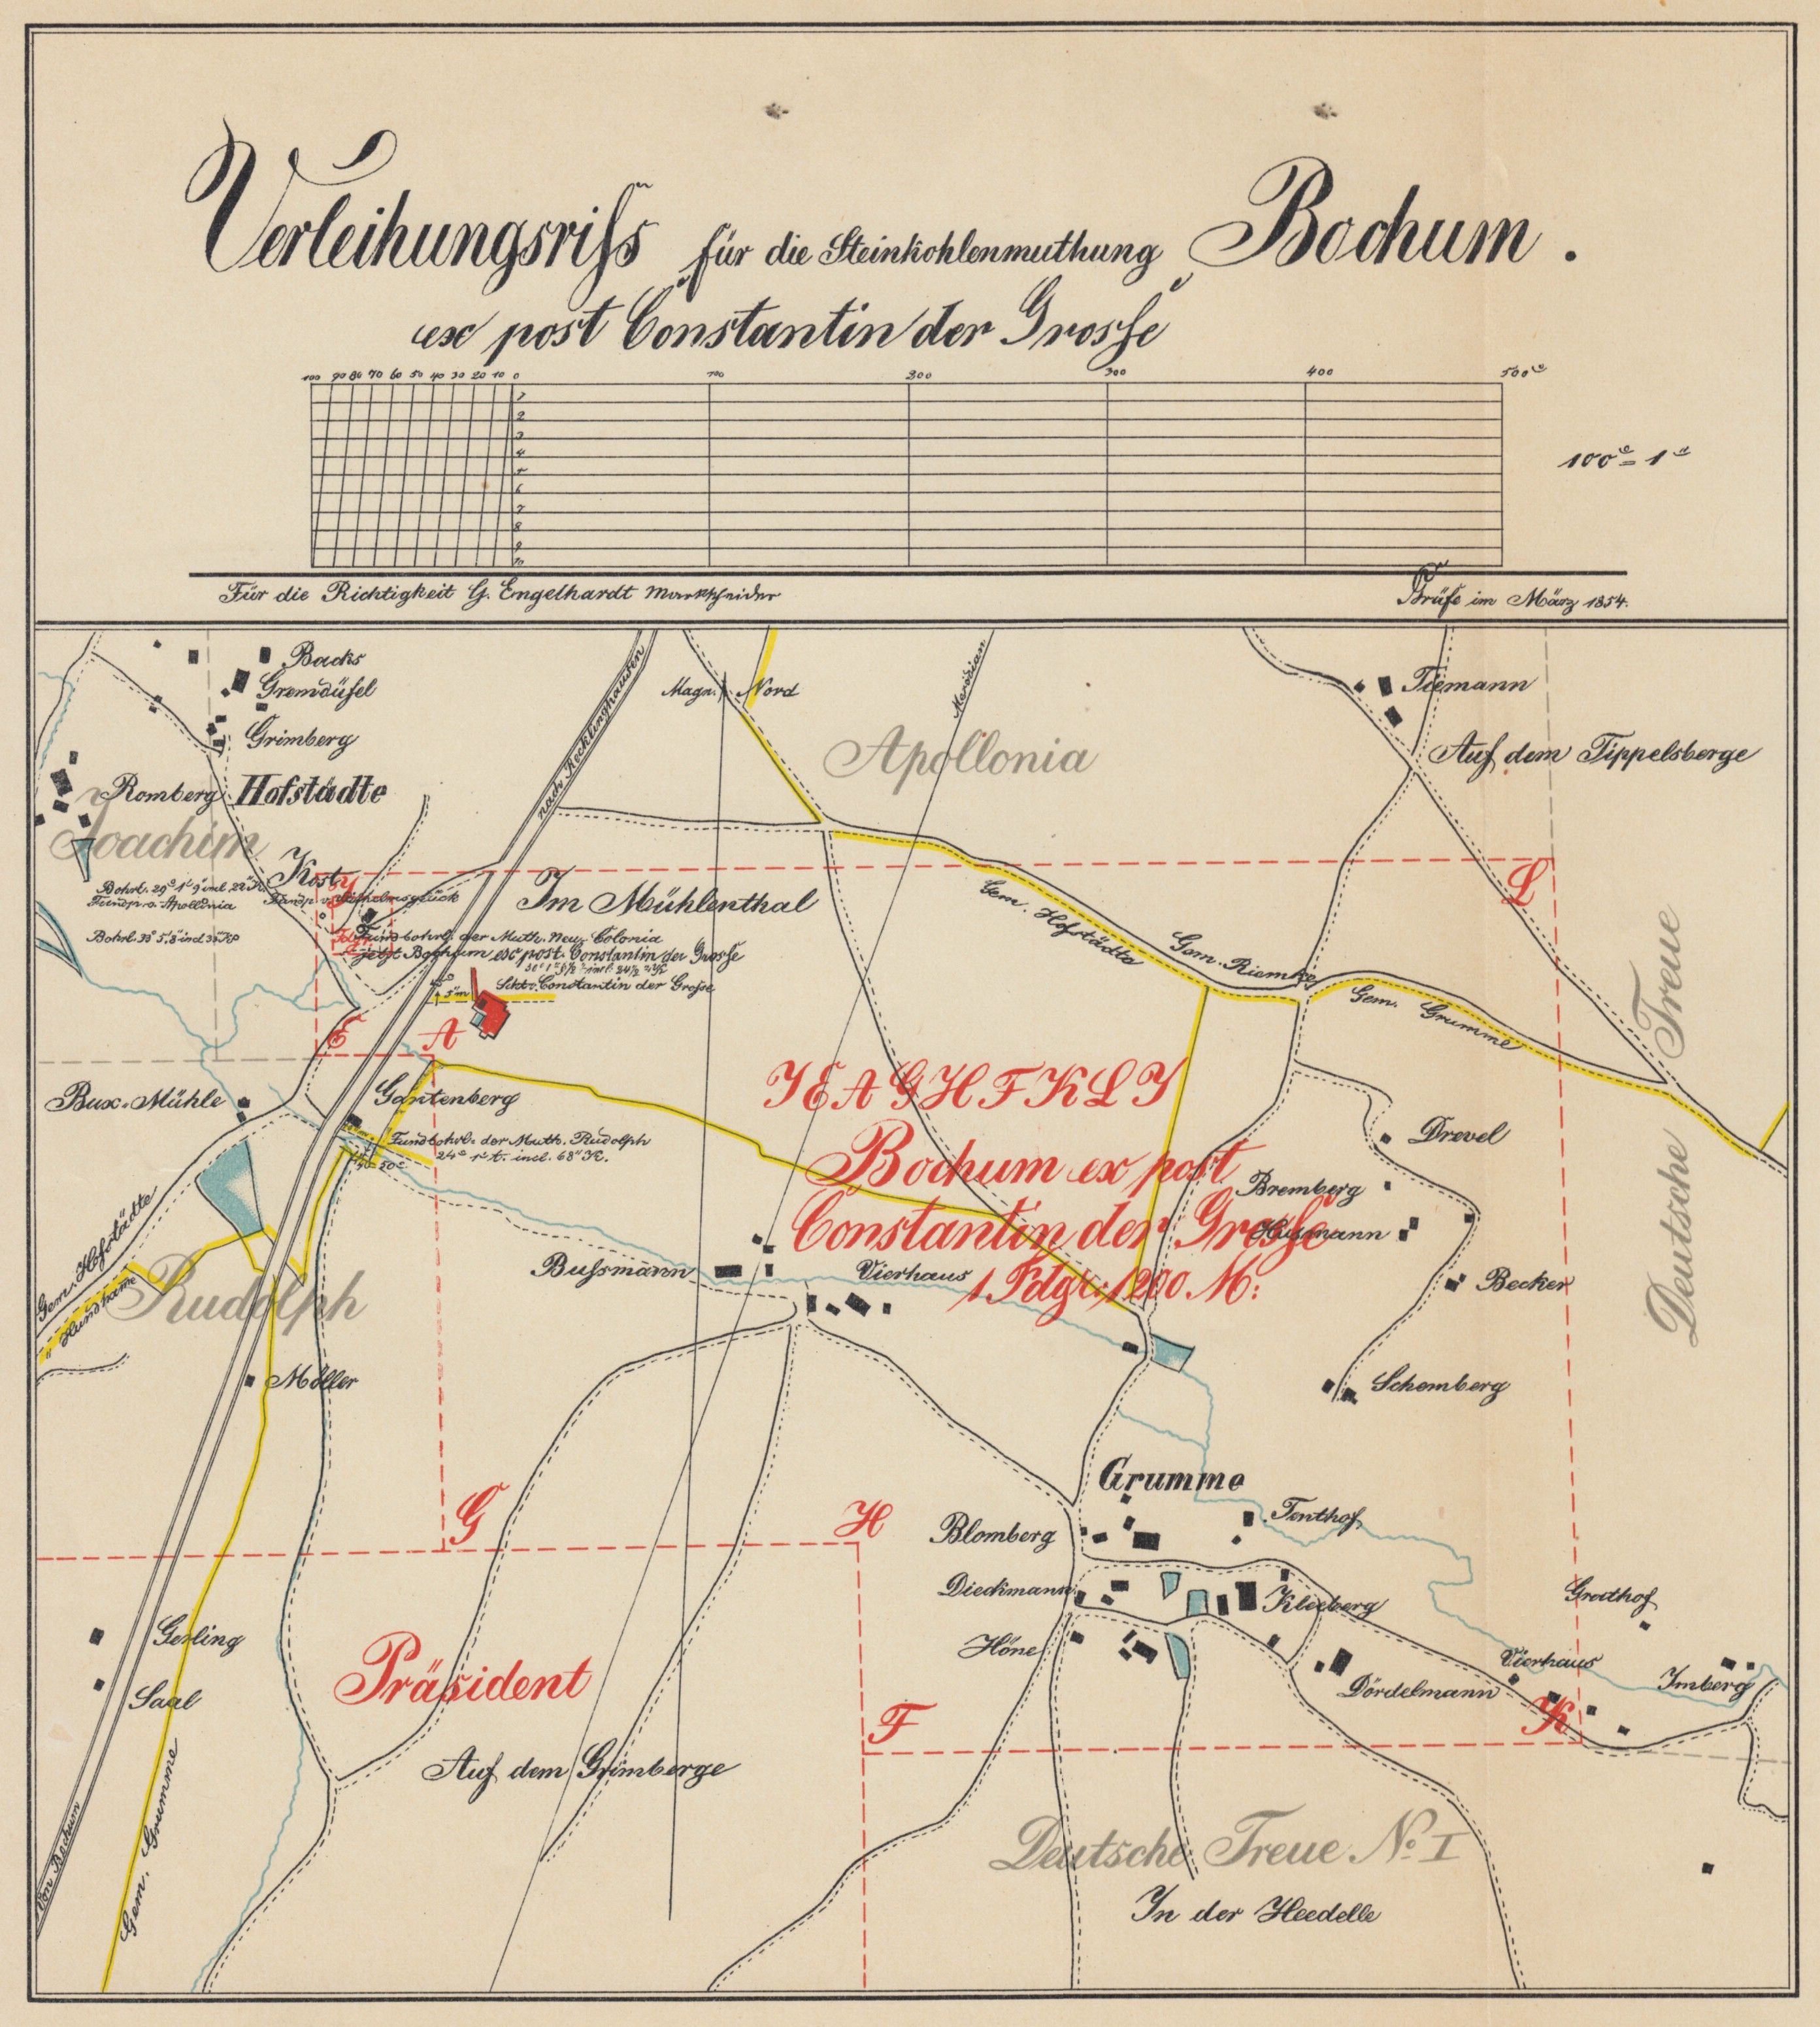 Verleihungsriss für die Steinkohlenmuthung Bochum.
ex post Constantin der Grosse
100 90 80 70 60 50 40 30 20 10 0 100 200 300 400 500°
1
2
3
4
5
6
7
8
9
10
100° = 1"
Für die Richtigkeit G. Engelhardt Markscheider
März 1854.
Backs
Gremdüfel
Grimberg
Romberg
Hofstädte
Joachim
nach Recklinghausen
Magn. Nord
Meridian
Apollonia
Tiemann
Auf dem Tippelsberge
Kost
J
Im Mühlenthal
L
Fundp. v. Apollonia
Fundbohrl. der Muth. Neu-Colonia
jetzt Bochum ex post Constantin der Grosse
Constantin der Grosse
Gem. Hofstädte
Gem. Riemke
Gem. Grumme
Deutsche Treue
E
A
Bux-Mühle
Gantenberg
Fundbohrl. der Muth. Rudolph
24° 1' t. incl. 68" K.
J E A G H F K L J
Bochum ex post
Constantin der Grosse
1 Fdgr. 1200 M:
Drevel
Bremberg
Husmann
Becker
Schemberg
Gem. Hofstädte
" Hundhame
Rudolph
Bussmann
Vierhaus
Möller
G
H
Grumme
Tenthof
Blomberg
Dieckmann
Klieberg
Grothof
Höne
Vierhaus
Dördelmann
Imberg
Gerling
Saal
Präsident
F
K
Auf dem Grimberge
Von Bochum
Gem. Grumme
Deutsche Treue No. I
In der Heedelle